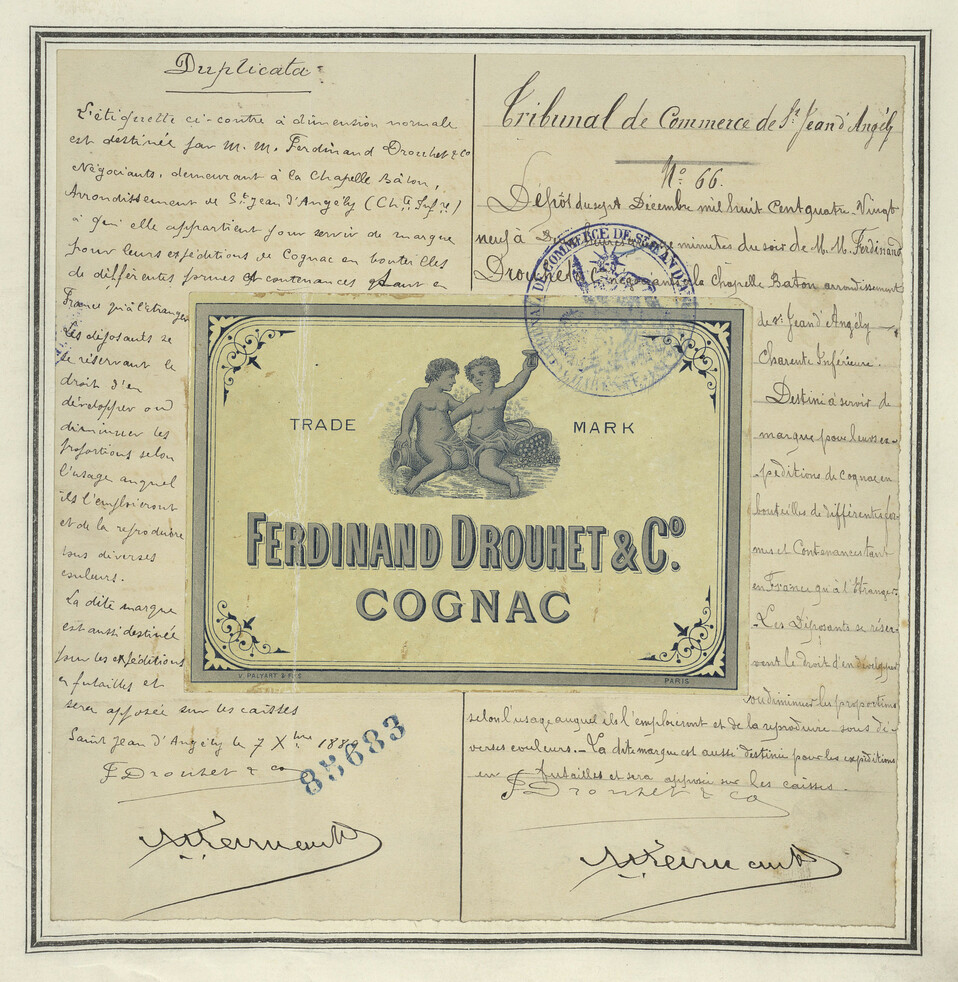 Duplicata
L'étiquette ci-contre à dimension normale
est destinée par M. M. Ferdinand Drouhet & Co
Négociants, demeurant à la Chapelle Bâton,
Arrondissement de St Jean d'Angély (Chte Infre)
à qui elle appartient pour servir de marque
pour leurs expéditions de Cognac en bouteilles
de différentes formes et contenances tant en
France qu'à l'étranger
Les déposants se
se réservant le
droit d'en
développer ou
diminuer les
proportions selon
l'usage auquel
ils l'emploieront
et de la reproduire
sous diverses
couleurs.
La dite marque
est aussi destinée
pour les expéditions
en futailles et
sera apposée sur les caisses
Saint Jean d'Angély le 7 Xbre 188
F Drouhet & Co
85683
Tribunal de Commerce de St Jean d'Angély
No 66.
Dépôt du sept Décembre mil huit Cent quatre Vingt
neuf à minutes du soir de M. M. Ferdinand
Drouhet à la Chapelle Baton arrondissement
de St Jean d'Angély
Charente Inférieure.
Destiné à servir de
marque pour leurs ex-
péditions de Cognac en
bouteilles de différentes for-
mes et Contenances tant
en France qu'à l'Etranger
Les Déposants se réser-
vent le droit d'en développer
ou diminuer les proportions
selon l'usage auquel ils l'emploiront et de la reproduire sous di-
verses couleurs. - La dite marque est aussi destinée pour les expéditions
en futailles et sera apposée sur les caisses.
F Drouhet & Co
COMMERCE DE ST JEAN D'A
TRADE MARK
FERDINAND DROUHET & Co.
COGNAC
V. PALYART & FILS
PARIS